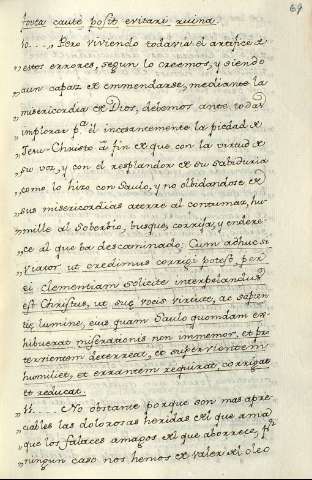 69
fovea caute possit evitari ruina
10.... „Pero viviendo todavia el artifice de
„estos errores, segun lo creemos, y siendo
„aun capaz de emmendarse, mediante la
„misericordia de Dios, debemos ante todas
„implorar pª el incesantemente la piedad de
„Jesu-Christo á fin de que con la virtud de
„su voz, y con el resplandor de su sabiduria
„como lo hizo con Saulo, y no olbidandose de
„sus misericordias aterre al contumaz, hu-
„mille al Soberbio, busque, corrija, y endere-
„ce al que ba descaminado. Cum adhuc si
Viator, ut credimus corrigi potest, per
ei clementiam solicite interpelandus
est Christus, ut suę vocis virtute, ac sapien
tię lumine, eius quam Saulo quondam ex
hibuerat miserationis non immemor, et pr
terrientem deterreat, et supervientem
humiliet, et errantem requirat, corrigat
et reducat.
11.... No obstante porque son mas apre-
„ciables las dolorosas heridas del que ama
„que los falaces amagos del que aborrece, pr
„ningun caso nos hemos de valer del oleo